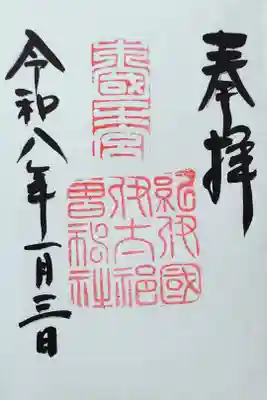 奉拝
紀伊國
伊太祁
曽神社
令和八年一月三日